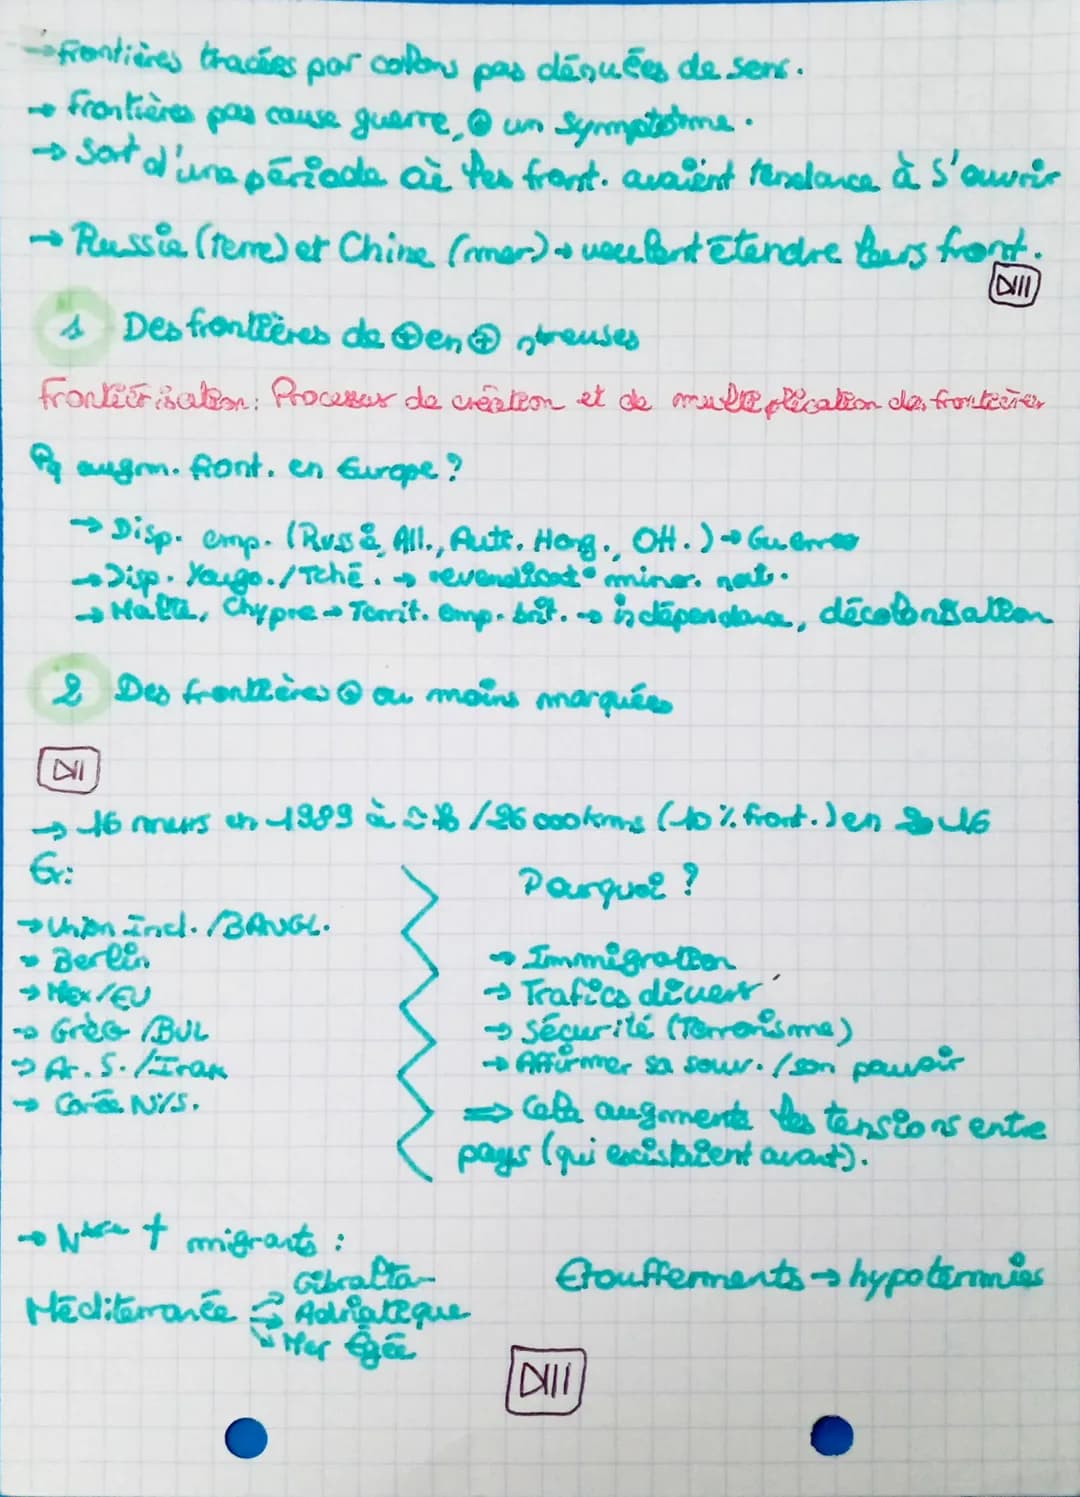 → Frontières tracées par colons pas dénuées de sens.
→ Frontières pas cause guerre, ⊕ un symptôme.
→ Sort d'une période où les front. avaient tendance à s'ouvrir
→ Russie (terre) et Chine (mer) → veulent étendre leurs front.
DIII
1 Des frontières de ⊕ en ⊕ nbreuses
Frontiérisation: Processus de création et de multiplication des frontières
Pq augm. front. en Europe ?
→ Disp. emp. (Russe, All., Autr. Hong., OH.) → Guerres
→ Disp. Yougo./Tché. → revendicat° minor. nat.
→ Malte, Chypre → Territ. emp. brit. → indépendance, décolonisation
2 Des frontières ⊕ ou moins marquées
DII
→ 16 murs en 1989 à ≃ /26 000kms (10% front.) en 2016
Ex:
→ Union ind./BANGL.
→ Berlin
→ Mex/EU
→ Grèce/BUL
→ Ar. S./Irak
→ Corée N/S.
Pourquoi ?
→ Immigration
→ Trafics divers
→ Sécurité (Terrorisme)
→ Affirmer sa souv. /son pouvoir
⇒ Cela augmente les tensions entre
pays (qui existaient avant).
→ † migrants :
Méditerranée
Gibraltar
→ Adriatique
→ Mer Égée
Etoufferments → hypotermies
DIII